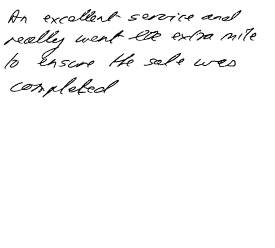 An excellent service and
really went the extra mile
to ensure the sale was
completed